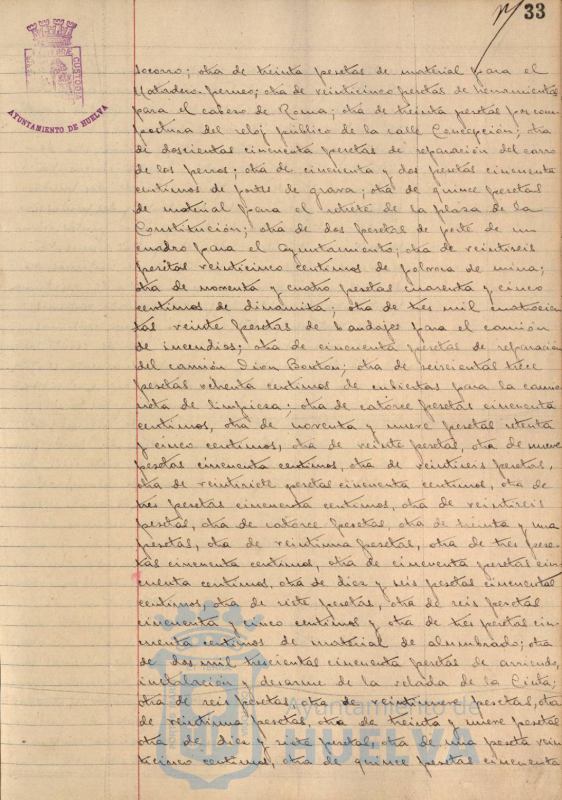 33
AYUNTAMIENTO DE HUELVA
socorro; otra de treinta pesetas de material para el
Matadero; otra de veinticinco pesetas de herramientas
para el cabezo de Roma; otra de treinta pesetas por com-
postura del reloj público de la calle Concepción; otra
de doscientas cincuenta pesetas de reparación del carro
de los perros; otra de cincuenta y dos pesetas cincuenta
centimos de portes de grava; otra de quince pesetas
de material para el retrete de la plaza de la
Constitución; otra de dos pesetas de porte de un
cuadro para el Ayuntamiento; otra de veintiseis
pesetas veinticinco centimos de polvora de mina;
otra de noventa y cuatro pesetas cuarenta y cinco
centimos de dinamita; otra de tres mil cuatrocien-
tas veinte pesetas de bandajes para el camión
de incendios; otra de cincuenta pesetas de reparación
del camión Dion Bouton; otra de seiscientas trece
pesetas ochenta centimos de cubiertas para la camio-
neta de limpieza; otra de catorce pesetas cincuenta
centimos, otra de noventa y nueve pesetas setenta
y cinco centimos, otra de veinte pesetas, otra de nueve
pesetas cincuenta centimos, otra de veintiseis pesetas,
otra de veintisiete pesetas cincuenta centimos, otra de
tres pesetas cincuenta centimos, otra de veintiseis
pesetas, otra de catorce pesetas, otra de treinta y una
pesetas, otra de veintiuna pesetas, otra de tres pese-
tas cincuenta centimos, otra de cincuenta pesetas cin-
cuenta centimos, otra de diez y seis pesetas cincuenta
centimos otra de siete pesetas, otra de seis pesetas
cincuenta y cinco centimos y otra de tres pesetas cin-
cuenta centimos de material de alumbrado; otra
de dos mil trescientas cincuenta pesetas de arriendo,
instalación y desarme de la velada de la Cinta;
otra de seis pesetas, otra de veintiuna pesetas, otra
de veintiuna pesetas, otra de treinta y nueve pesetas
otra de diez y siete pesetas, otra de una peseta vein-
ticinco centimos, otra de quince pesetas cincuenta
Ayuntamiento de
HUELVA